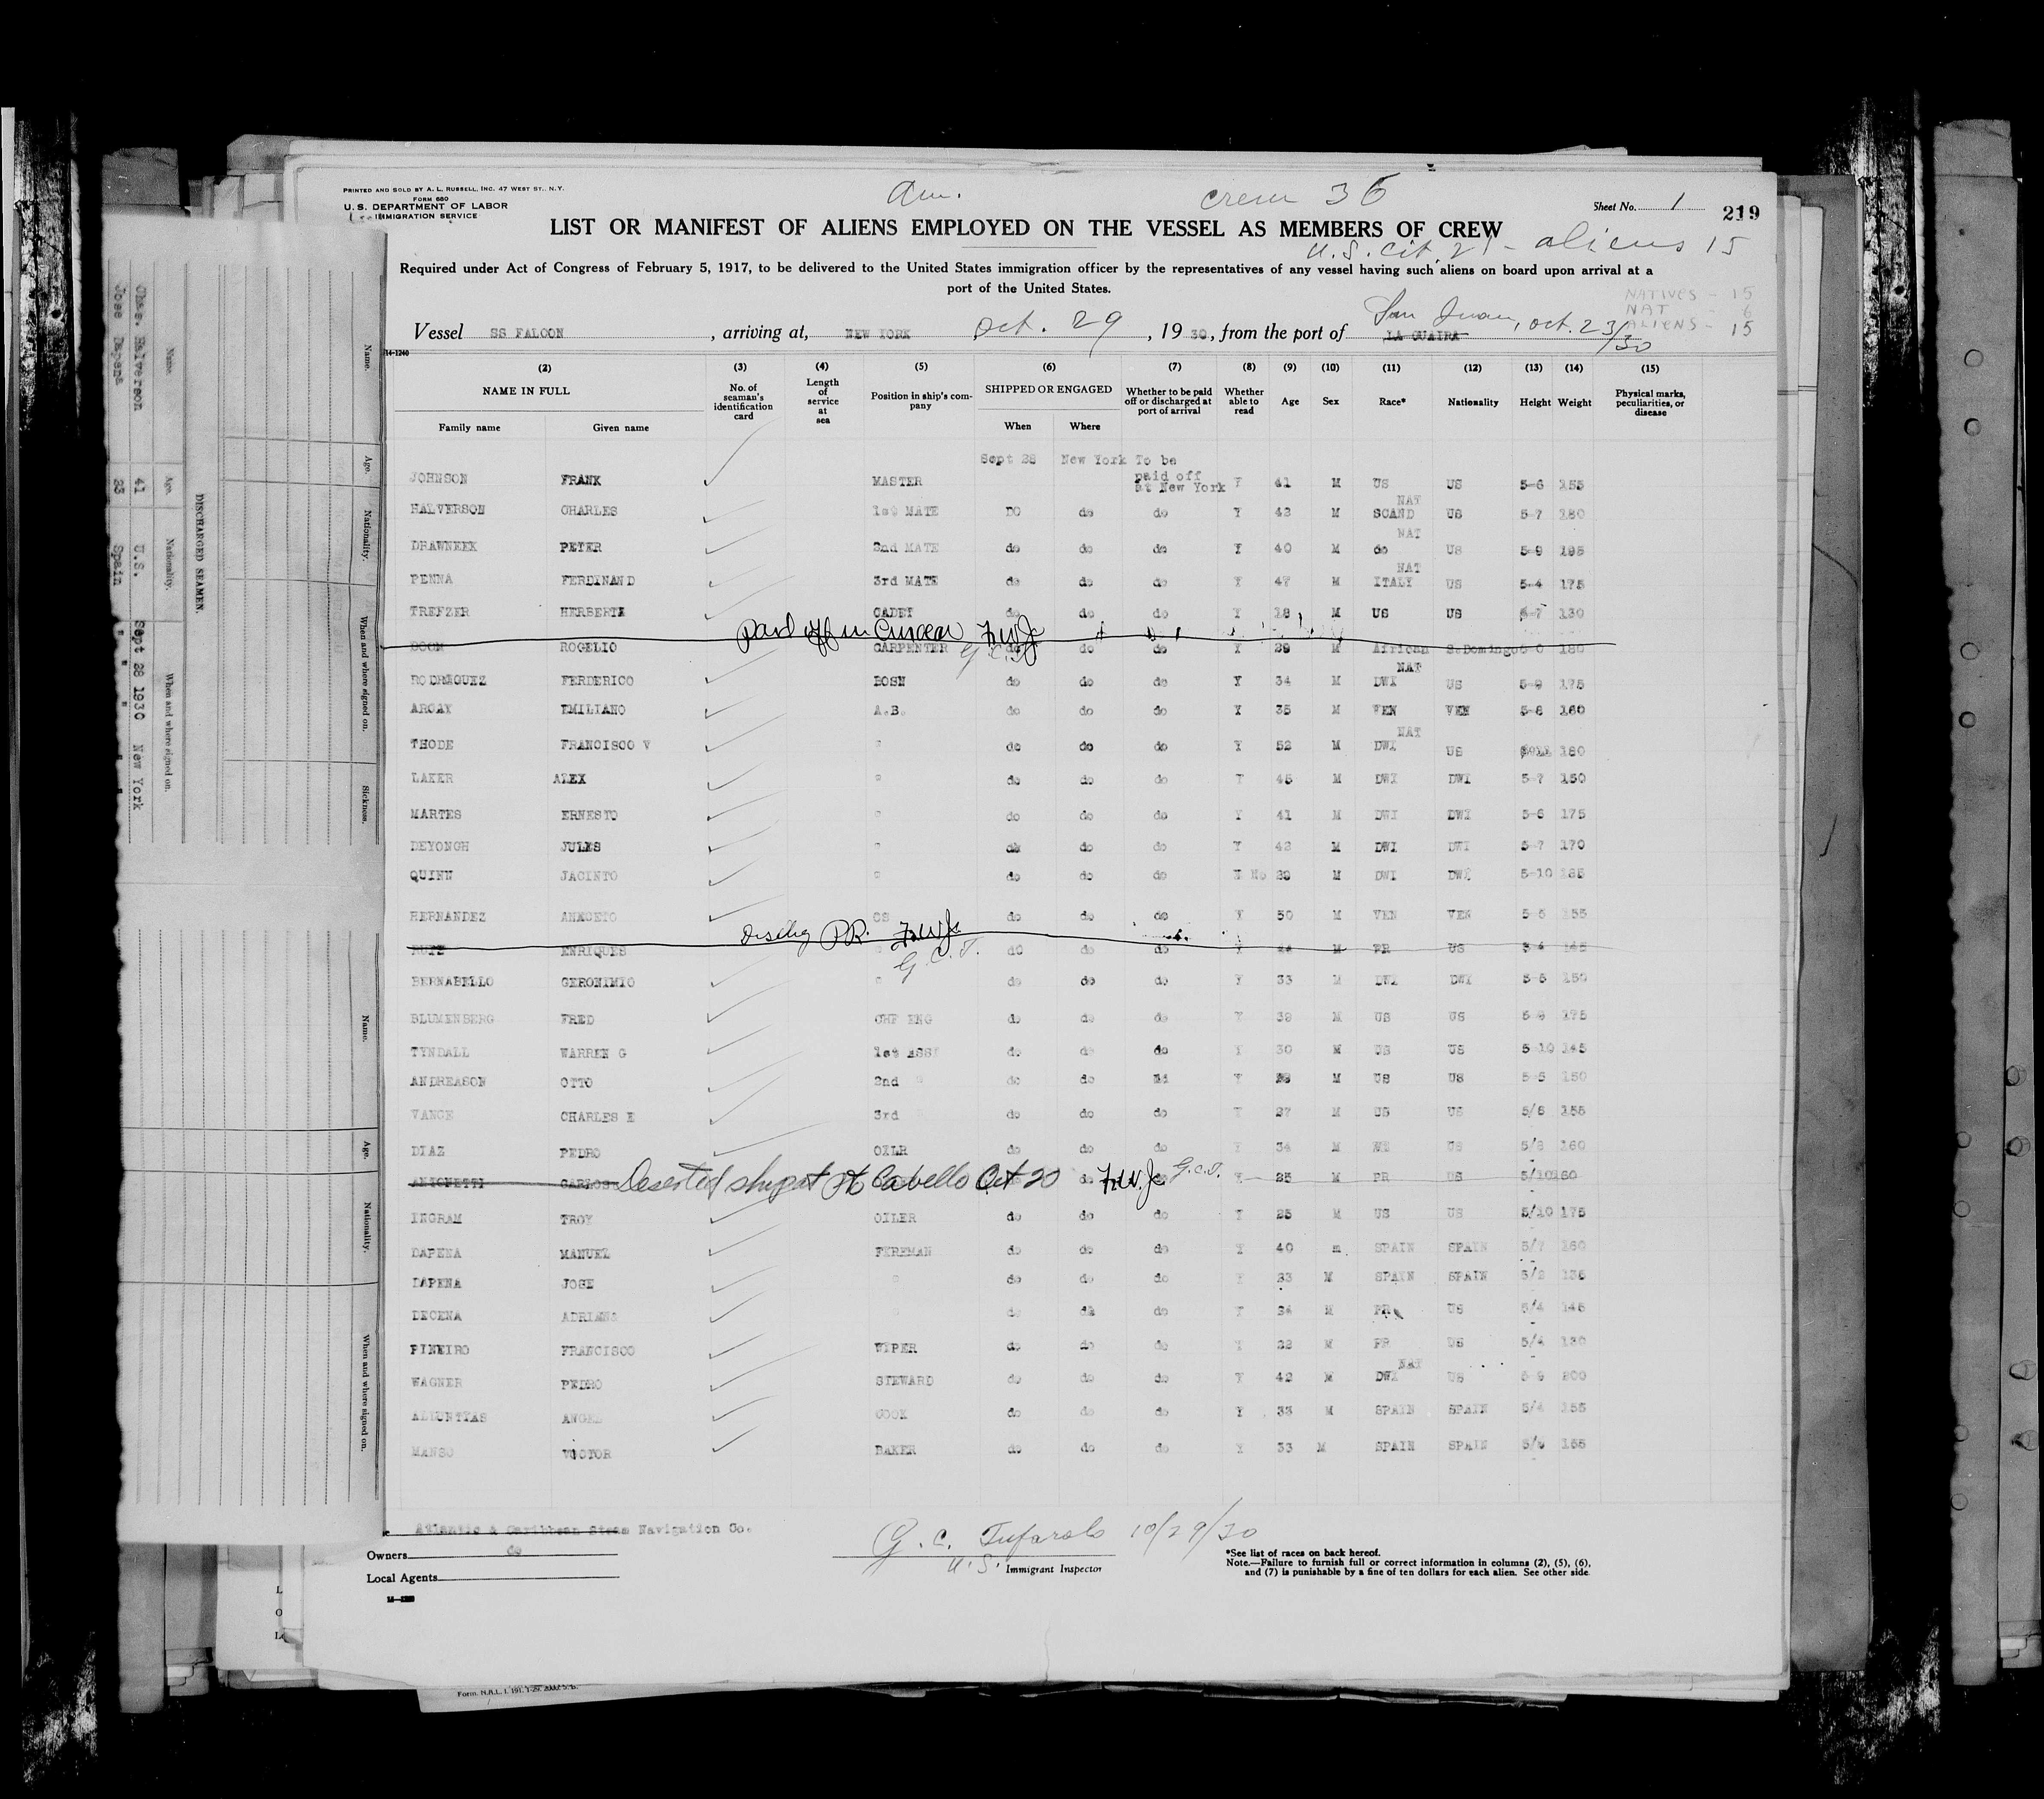 PRINTED AND SOLD BY A. L. RUSSELL, INC. 47 WEST ST., N.Y.
FORM 680
U. S. DEPARTMENT OF LABOR
IMMIGRATION SERVICE
am.
crew 36
Sheet No. 1
219
LIST OR MANIFEST OF ALIENS EMPLOYED ON THE VESSEL AS MEMBERS OF CREW
U.S. cit. 21 - aliens 15
Required under Act of Congress of February 5, 1917, to be delivered to the United States immigration officer by the representatives of any vessel having such aliens on board upon arrival at a
port of the United States.
NATIVES - 15
NAT - 6
ALIENS - 15
Vessel SS FALCON, arriving at, NEW YORK Oct. 29, 1930, from the port of LA GUAIRA San Juan, Oct. 23/30
14-1240
(2) (3) (4) (5) (6) (7) (8) (9) (10) (11) (12) (13) (14) (15)
NAME IN FULL
Family name Given name
No. of seaman's identification card
Length of service at sea
Position in ship's company
SHIPPED OR ENGAGED
When Where
Whether to be paid off or discharged at port of arrival
Whether able to read
Age Sex Race* Nationality Height Weight
Physical marks, peculiarities, or disease
Sept 28 New York To be paid off at New York
JOHNSON FRANK MASTER Y 41 M US US 5-6 155
HALVERSON CHARLES 1st MATE DO do do Y 42 M SCAND NAT US 5-7 180
DRAWNEEK PETER 2nd MATE do do do Y 40 M do NAT US 5-9 195
PENNA FERDINAND 3rd MATE do do do Y 47 M ITALY NAT US 5-4 175
TREFZER HERBERT CADET do do do Y 18 M US US 5-7 130
paid off in Curacao F.W.Jc
G.C.T.
ROGELIO CARPENTER do do do Y 29 M African S.Domingo 180
RODRIGUEZ FERDERICO BOSN do do do Y 34 M DWI NAT US 5-9 175
ARCAY EMILIANO A.B. do do do Y 35 M VEN VEN 5-8 160
THODE FRANCISCO V " do do do Y 52 M DWI NAT US 180
LAKER ALEX " do do do Y 45 M DWI DWI 5-7 150
MARTES ERNESTO " do do do Y 41 M DWI DWI 5-8 175
DEYONGH JULES " do do do Y 42 M DWI DWI 5-7 170
QUINN JACINTO " do do do No 29 M DWI DWI 5-10 185
HERNANDEZ ANACETO OS do do do Y 50 M VEN VEN 5-5 155
Dischg P.R. F.W.Jc
G.C.T.
RUIZ ENRIQUES " do do do Y M PR US 5-4 145
BERNABELLO GERONIMIO " do do do Y 33 M DWI DWI 5-5 150
BLUMENBERG FRED CHF ENG do do do Y 39 M US US 5-9 175
TYNDALL WARREN G 1st ASST do do do Y 30 M US US 5-10 145
ANDREASON OTTO 2nd " do do Y M US US 5-5 150
VANCE CHARLES E 3rd " do do do Y 27 M US US 5/8 155
DIAZ PEDRO OILR do do do Y 34 M US 5/8 160
ANTONETTI CARLOS Deserted ship at Pto Cabello Oct 20 F.W.Jc G.C.T. Y 25 M PR US 5/10 160
INGRAM TROY OILER do do do Y 25 M US US 5/10 175
DAPENA MANUEL FIREMAN do do do Y 40 m SPAIN SPAIN 5/7 160
DAPENA JOSE " do do do Y 23 M SPAIN SPAIN 5/2 135
DECENA ADRIANO " do do do Y 24 M PR US 5/4 145
PINEIRO FRANCISCO WIPER do do do Y 22 M PR US 5/4 130
WAGNER PEDRO STEWARD do do do Y 42 M DWI NAT US 5-9 200
ANGEL COOK do do do Y 33 M SPAIN SPAIN 5/4 155
MANSO VICTOR BAKER do do do Y 33 M SPAIN SPAIN 155
Atlantic & Caribbean Steam Navigation Co.
Owners do
Local Agents
G. C. Tufarolo 10/29/30
U.S. Immigrant Inspector
*See list of races on back hereof.
Note.—Failure to furnish full or correct information in columns (2), (5), (6),
and (7) is punishable by a fine of ten dollars for each alien. See other side.
DISCHARGED SEAMEN.
Name. Age. Nationality. When and where signed on.
Chas. Halverson 41 U.S. Sept 28 1930 New York
Jose Dapena 23 Spain " " " "
Name. Age. Nationality. When and where signed on. Sickness.
Name. Age. Nationality. When and where signed on.